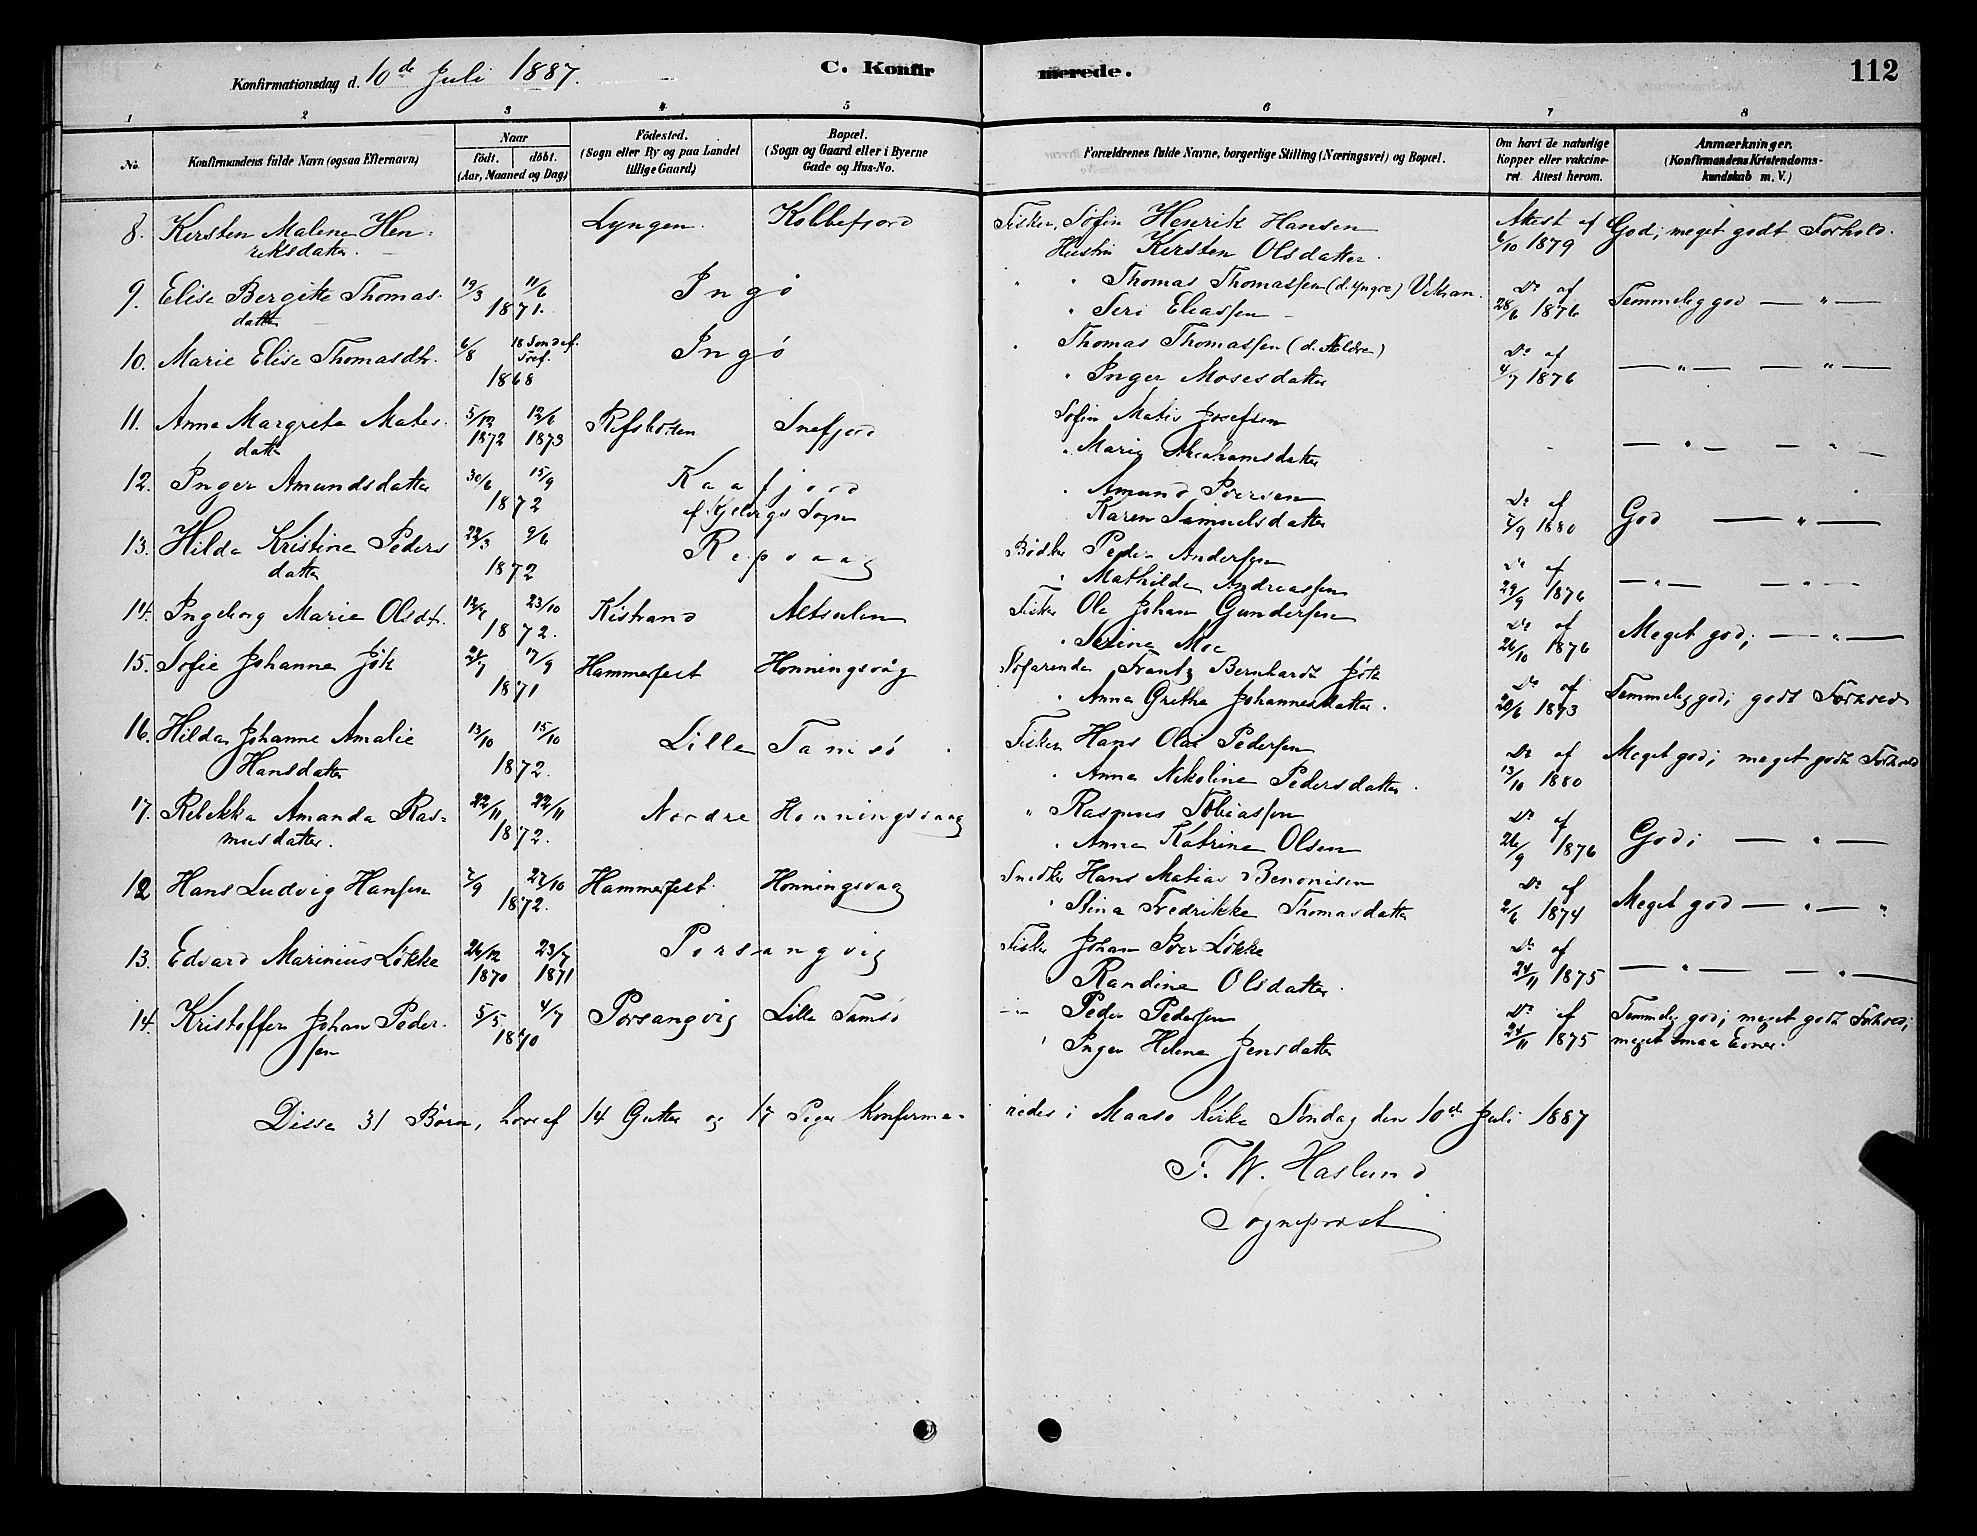 Konfirmationsdag d. 10de Juli 1887.
C. Konfirmerede.
112
1 2 3 4 5 6 7 8
No.
Konfirmandens fulde Navn (ogsaa Efternavn)
Naar
födt. döbt.
(Aar, Maaned og Dag)
Födested.
(Sogn eller By og paa Landet
tillige Gaard)
Bopæl.
(Sogn og Gaard eller i Byerne
Gade og Hus-No.
Forældrenes fulde Navne, borgerlige Stilling (Næringsvei) og Bopæl.
Om havt de naturlige
Kopper eller vakcine-
ret. Attest herom.
Anmærkninger.
(Konfirmandens Kristendoms-
kundskab m. V.)
8. Kirsten Malene Hen- Lyngen. Kolbefjord Fisker, Søfin Henrik Hansen Attest af God; meget godt Forhold.
riksdatter. Hustru Kirsten Olsdatter. 6/10 1879
9. Elise Bergitte Thomas- 19/3 11/6 Ingø " " Thomas Thomassen (d. yngre) Do af Temmelig god — " —
datter 1871. " Seri Eliassen 28/6 1876
10. Marie Elise Thomasdtr. 6/8 18 Sond. ef. Tref. Ingø " Thomas Thomassen (d. Ældre) Do af — " — — " —
1868 " Inger Mosesdatter 4/7 1876
11. Anna Margrete Mates- 5/12 12/6 Refsbotten Snefjord Søfin Matis Josefsen
datter 1872 1873 " Marie Abrahamsdatter — " — — " —
12. Inger Amundsdatter 30/6 15/9 Kaafjord " Amund Poersen Do af
1872 af Kjelvigs Sogn Karen Samuelsdatter 7/9 1880 God — " —
13. Hilda Kristine Peders- 22/3 9/6 Repvaag Bødker Peder Andersen Do af
datter 1872 " Mathilde Andreassen 29/9 1876 — " — — " —
14. Ingeborg Marie Olsdtr. 12/4 23/10 Kistrand Altsulen Fisker Ole Johan Gundersen Do af Meget god; — " —
1872. " Serine Moe 26/10 1876
15. Sofie Johanne Jök 21/7 17/9 Hammerfest Honningsvåg Søfarende Frantz Bernhardt Jök Do af Temmelig god; godt Forhold
1871 " Anna Grethe Johannesdatter. 20/6 1873
16. Hilda Johanne Amalie 13/10 15/10 Lille Tamsö. Fisker Hans Olai Pedersen Do af Meget god; meget godt Forhold
Hansdatter 1872. " Anna Nikoline Pedersdatter. 13/10 1880
17. Rebekka Amanda Ras- 22/11 22/11 Nordre Honningsvaag " Rasmus Tobiassen Do af God; — " —
musdatter. 1872. " Anna Katrine Olsen 26/9 1876
12 Hans Ludvig Hansen 7/9 27/10 Hammerfest. Honningsvag Snedker Hans Matias Benonisen Do af Meget god — " — "
1872. " Stina Fredrikke Thomasdatter 2/6 1874
13. Edvard Marinius Løkke 26/12 23/7 Porsangvig Fisker Johan Peer Løkke Do af
1870 1871 Randine Olsdatter. 24/11 1875 — " — — " —
14. Kristoffer Johan Peder- 5/5 4/7 Porsangvig Lille Tamsø — " — Peder Pedersen Do af Temmelig god; meget godt Forhold;
sen 1870 " Inger Helene Jensdatter 24/11 1875 meget smaa Evner.
Disse 31 Børn, hvoraf 14 Gutter og 17 Piger konfirme- redes i Maasø Kirke Søndag den 10de Juli 1887
F. W. Haslund
Sogneprest